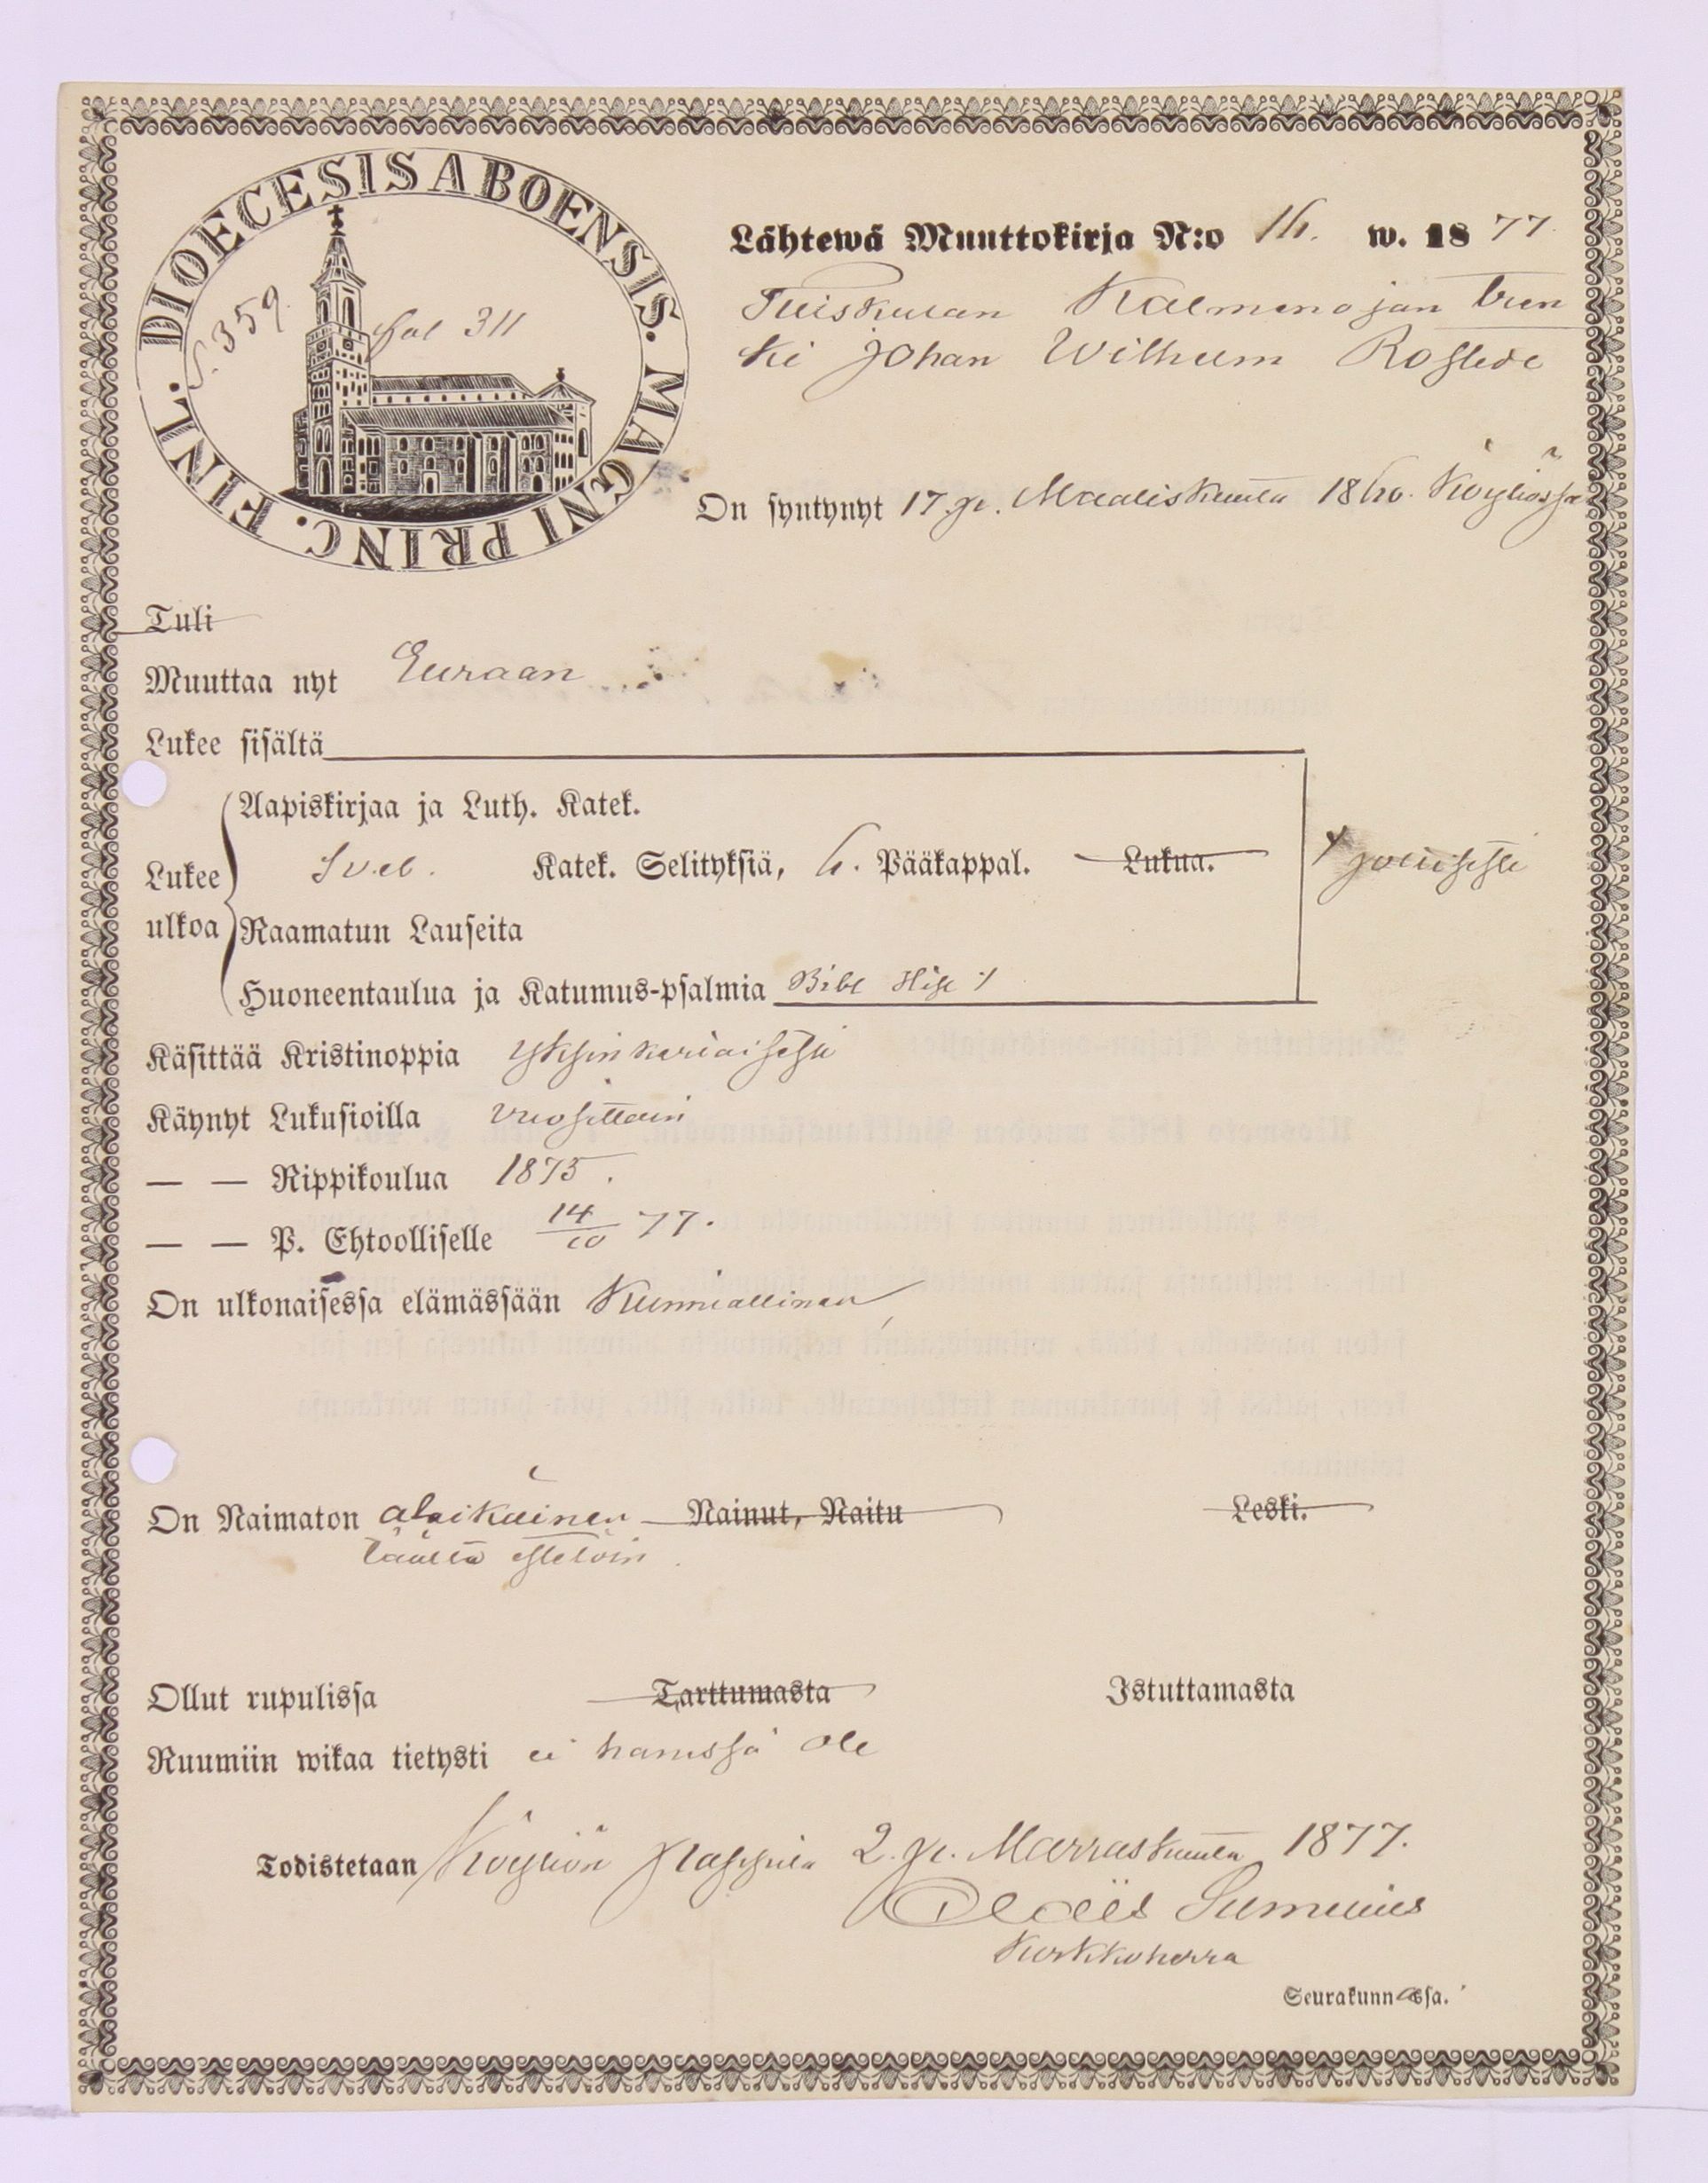 DIOECESIS ABOENSIS. MAGNI PRINC. FINL.
S. 359. fol 311
Lähtewä Muuttokirja N:o 16. w. 1877.
Tuiskulan Kalmenojan tren
ki Johan Wilhelm Roslede
On syntynyt 17 p. Maaliskuuta 1860. Köyliössä
Tuli
Muuttaa nyt Euraan
Lukee sisältä
Aapiskirjaa ja Luth. Katek.
Lukee ulkoa
Sveb. Katek. Selityksiä, 6. Pääkappal. Lukua.
Raamatun Lauseita
Huoneentaulua ja Katumus-psalmia Bibl Hist
Käsittää Kristinoppia yksinkertaisesti
Käynyt Lukusioilla vuosittain
— — Rippikoulua 1875.
— — P. Ehtoolliselle 14/10 77.
On ulkonaisessa elämässään Kunniallinen,
On Naimaton alaikäinen Nainut, Naitu Leski.
täältä esteetöin.
Ollut rupulissa Tarttumasta Istuttamasta
Ruumiin wikaa tietysti ei hänessä ole
Todistetaan Köyliön Pappila 2. p. Marraskuuta 1877.
Sumelius
Kirkkoherra
Seurakunnassa.